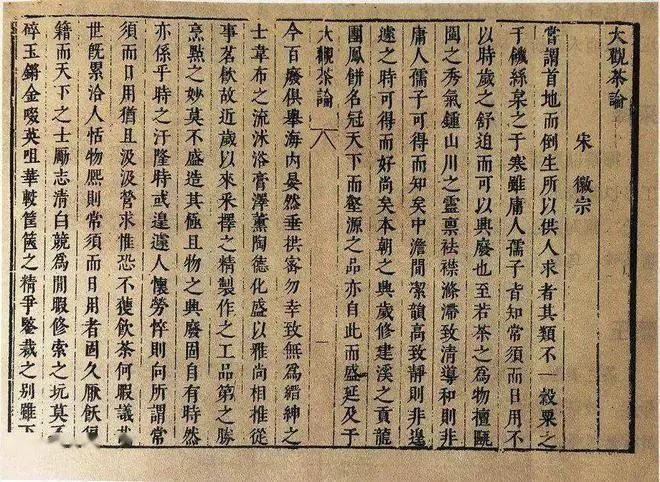 大觀茶論
宋 徽宗
嘗謂首地而倒生所以供人求者其類不一穀粟之
于饑絲枲之于寒雖庸人孺子皆知常須而日用不
以時歲之舒迫而可以興廢也至若茶之為物擅甌
閩之秀氣鍾山川之靈禀祛襟滌滯致清導和則非
庸人孺子可得而知矣中澹閒潔韻高致靜則非遑
遽之時可得而好尚矣本朝之興歲修建溪之貢龍
團鳳餅名冠天下而壑源之品亦自此而盛延及于
大觀茶論 一
今百廢俱舉海內晏然垂拱密勿幸致無為縉紳之
士韋布之流沐浴膏澤薰陶德化盛以雅尚相推從
事茗飲故近歲以來采擇之精製作之工品第之勝
烹點之妙莫不盛造其極且物之興廢固自有時然
亦係乎時之汙隆時或遑遽人懷勞悴則向所謂常
須而日用猶且汲汲營求惟恐不獲飲茶何暇議
世既累洽人恬物熙則常須而日用者固久厭飫
籍而天下之士勵志清白競為閒暇修索之玩莫
碎玉鏘金啜英咀華較筐篋之精爭鑒裁之別雖下